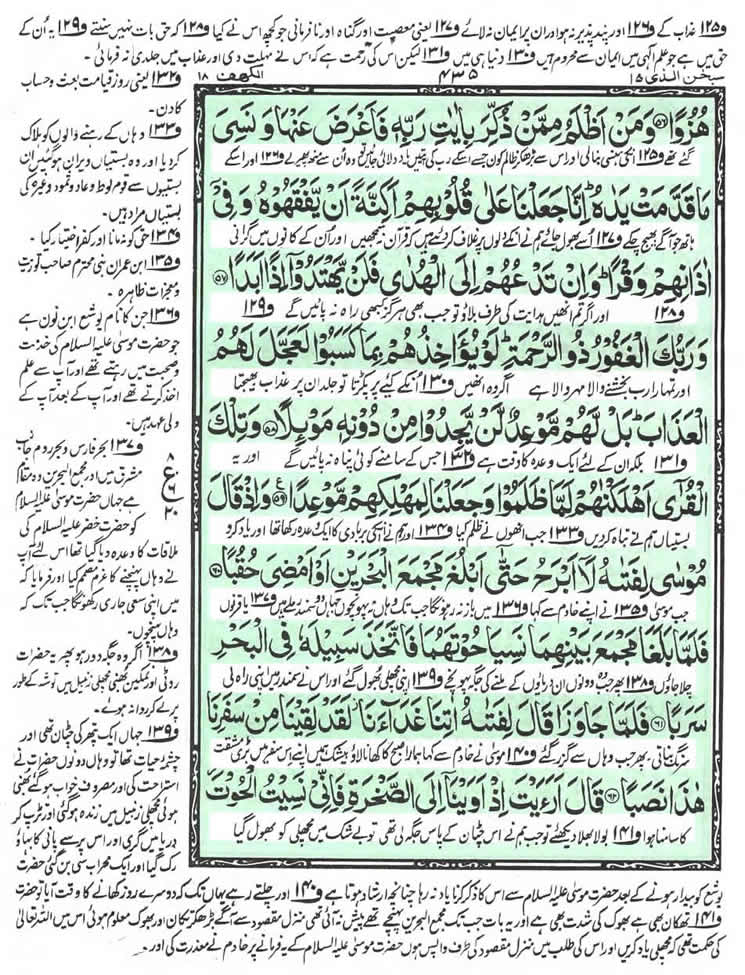 و۱۲۵ عذاب کے و۱۲۶ اور پند پذیر نہ ہو اور ان پر ایمان نہ لائے و۱۲۷ یعنی معصیت اور گناہ اور نافرمانی جو کچھ اس نے کیا و۱۲۸ کہ حق بات نہیں سنتے و۱۲۹ یہ ان کے
حق میں ہے جو علم الٰہی میں ایمان سے محروم ہیں و۱۳۰ دنیا ہی میں و۱۳۱ لیکن اس کی رحمت ہے کہ اس نے مہلت دی اور عذاب میں جلدی نہ فرمائی۔
سبحٰن الذی ۱۵
۴۳۵
الکھف ۱۸
هُزُوًا ﴿۵۶﴾ وَمَنْ اَظْلَمُ مِمَّنْ ذُكِّرَ بِاٰیٰتِ رَبِّهٖ فَاَعْرَضَ عَنْهَا وَ نَسِیَ
گئے تھے و۱۲۵ انکی ہنسی بنالی اور اس سے بڑھکر ظالم کون جسے اسکے رب کی آیتیں یاد دلائی جائیں تو وہ ان سے منھ پھیر لے و۱۲۶ اور اسکے
مَا قَدَّمَتْ یَدٰهُ ؕ اِنَّا جَعَلْنَا عَلٰی قُلُوْبِهِمْ اَكِنَّةً اَنْ یَّفْقَهُوْهُ وَ فِیْۤ
ہاتھ جو آگے بھیج چکے و۱۲۷ اسے بھول جائے ہم نے انکے دلوں پر غلاف کردیئے ہیں کہ قرآن نہ سمجھیں اور ان کے کانوں میں گرانی
اٰذَانِهِمْ وَقْرًا ؕ وَ اِنْ تَدْعُهُمْ اِلَی الْهُدٰی فَلَنْ یَّهْتَدُوْۤا اِذًا اَبَدًا ﴿۵۷﴾
و۱۲۸ اور اگر تم انھیں ہدایت کی طرف بلاؤ تو جب بھی ہرگز کبھی راہ نہ پائیں گے و۱۲۹
وَ رَبُّكَ الْغَفُوْرُ ذُو الرَّحْمَةِ ؕ لَوْ یُؤَاخِذُهُمْ بِمَا كَسَبُوْا لَعَجَّلَ لَهُمُ
اور تمہارا رب بخشنے والا مہر والا ہے اگر وہ انھیں و۱۳۰ انکے کیے پر پکڑتا تو جلد ان پر عذاب بھیجتا
الْعَذَابَ ؕ بَلْ لَّهُمْ مَّوْعِدٌ لَّنْ یَّجِدُوْا مِنْ دُوْنِهٖ مَوْىِٕلًا ﴿۵۸﴾ وَ تِلْكَ
و۱۳۱ بلکہ ان کے لئے ایک وعدہ کا وقت ہے و۱۳۲ جس کے سامنے کوئی پناہ نہ پائیں گے اور یہ
الْقُرٰۤی اَهْلَكْنٰهُمْ لَمَّا ظَلَمُوْا وَ جَعَلْنَا لِمَهْلِكِهِمْ مَّوْعِدًا ﴿۵۹﴾ وَ اِذْ قَالَ
بستیاں ہم نے تباہ کردیں و۱۳۳ جب انھوں نے ظلم کیا و۱۳۴ اور ہم نے انکی بربادی کا ایک وعدہ رکھا تھا اور یاد کرو
مُوْسٰی لِفَتٰىهُ لَاۤ اَبْرَحُ حَتّٰۤی اَبْلُغَ مَجْمَعَ الْبَحْرَیْنِ اَوْ اَمْضِیَ حُقُبًا ﴿۶۰﴾
جب موسیٰ و۱۳۵ نے اپنے خادم سے کہا و۱۳۶ میں باز نہ رہونگا جب تک وہاں نہ پہونچوں جہاں دو سمندر ملے ہیں و۱۳۷ یا قرنوں
فَلَمَّا بَلَغَا مَجْمَعَ بَیْنِهِمَا نَسِیَا حُوْتَهُمَا فَاتَّخَذَ سَبِیْلَهٗ فِی الْبَحْرِ
چلا جاؤں و۱۳۸ پھر جب وہ دونوں ان دریاؤں کے ملنے کی جگہ پہونچے و۱۳۹ اپنی مچھلی بھول گئے اور اس نے سمندر میں اپنی راہ لی
سَرَبًا ﴿۶۱﴾ فَلَمَّا جَاوَزَا قَالَ لِفَتٰىهُ اٰتِنَا غَدَآءَنَا ؗ لَقَدْ لَقِیْنَا مِنْ سَفَرِنَا
سرنگ بناتی، پھر جب وہاں سے گزر گئے و۱۴۰ موسیٰ نے خادم سے کہا ہمارا صبح کا کھانا لاؤ بیشک ہمیں اپنے اس سفر میں بڑی مشقت
هٰذَا نَصَبًا ﴿۶۲﴾ قَالَ اَرَءَیْتَ اِذْ اَوَیْنَاۤ اِلَی الصَّخْرَةِ فَاِنِّیْ نَسِیْتُ الْحُوْتَ ؗ
کا سامنا ہوا و۱۴۱ بولا بھلا دیکھئے تو جب ہم نے اس چٹان کے پاس جگہ لی تھی تو بے شک میں مچھلی کو بھول گیا
و۱۳۲ یعنی روز قیامت بعث و حساب
کا دن۔
و۱۳۳ وہاں کے رہنے والوں کو ہلاک
کردیا اور وہ بستیاں ویران ہوگئیں ان
بستیوں سے قوم لوط و عاد و ثمود وغیرہ کی
بستیاں مراد ہیں۔
و۱۳۴ حق کو نہ مانا اور کفر اختیار کیا۔
و۱۳۵ ابن عمران نبی محترم صاحب توریت
و معجزات ظاہرہ۔
و۱۳۶ جن کا نام یوشع ابن نون ہے
جو حضرت موسیٰ علیہ السلام کی خدمت
و صحبت میں رہتے تھے اور آپ سے علم
اخذ کرتے تھے اور آپ کے بعد آپ کے
ولی عہد ہیں۔
و۱۳۷ بحر فارس و بحر روم جانب
مشرق میں اور مجمع البحرین وہ مقام
ہے جہاں حضرت موسیٰ علیہ السلام
کو حضرت خضر علیہ السلام کی
ملاقات کا وعدہ دیا گیا تھا اس لئے آپ
نے وہاں پہنچنے کا عزم مصمم کیا اور فرمایا کہ
میں اپنی سعی جاری رکھونگا جب تک کہ
وہاں پہنچوں۔
و۱۳۸ اگر وہ جگہ دور ہو پھر یہ حضرات
روٹی اور نمکین بھنی مچھلی زنبیل میں توشہ کے طور
پر لے کر روانہ ہوئے۔
و۱۳۹ جہاں ایک پتھر کی چٹان تھی اور
چشمۂ حیات تھا تو وہاں دونوں حضرات نے
استراحت کی اور مصروف خواب ہو گئے بھنی
ہوئی مچھلی زنبیل میں زندہ ہوگئی اور تڑپ کر
دریا میں گری اور اس پر سے پانی کا بہاؤ
رک گیا اور ایک محراب سی بن گئی حضرت
۸
ع
۶
۲۰
یوشع کو بیدار ہونے کے بعد حضرت موسیٰ علیہ السلام سے اس کا ذکر کرنا یاد نہ رہا چنانچہ ارشاد ہوتا ہے و۱۴۰ اور چلتے رہے یہاں تک کہ دوسرے روز کھانے کا وقت آیا تو حضرت
و۱۴۱ تھکان بھی ہے بھوک کی شدت بھی ہے اور یہ بات جب تک مجمع البحرین پہنچے تھے پیش نہ آئی تھی منزل مقصود سے آگے بڑھکر تکان اور بھوک معلوم ہوئی اس میں اللہ تعالیٰ
کی حکمت تھی کہ مچھلی یاد کریں اور اس کی طلب میں منزل مقصود کی طرف واپس ہوں حضرت موسیٰ علیہ السلام کے یہ فرمانے پر خادم نے معذرت کی اور۔